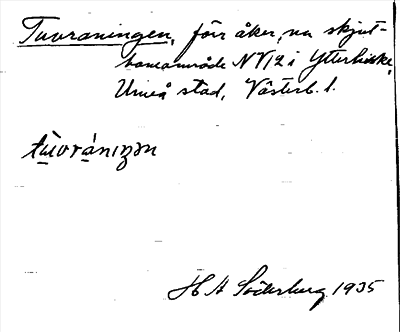 Tuvraningen, förr åker, nu skjut-
baneområde NV12 i Ytterhiske,
Umeå stad, Västerb. l.
tùvrániŋən
H A Söderberg 1935